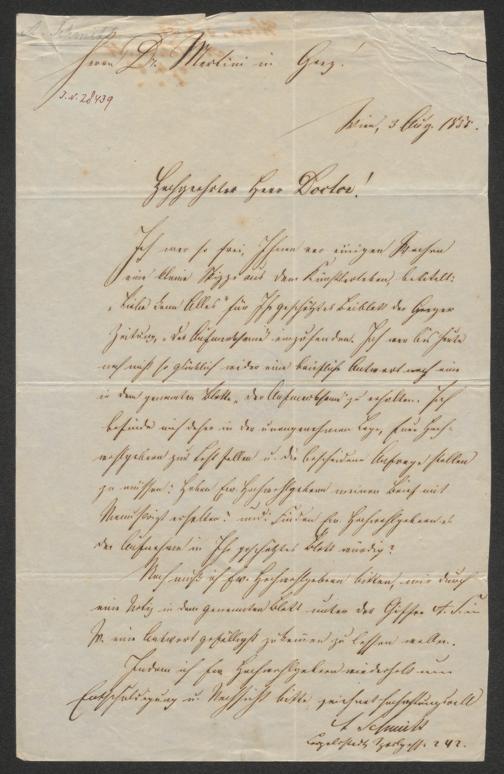 A. Schmidt
Herrn Dr. Martini in Graz!
I.N. 28439
Wien, 3 Aug. 1855.
Hochgeehrter Herr Doctor!
Ich war so frei, Ihnen vor einigen Wochen
eine kleine Skizze aus dem Künstlerleben, betitelt:
"Liebe kann Alles" für Ihr geschätztes Beiblatt der Grazer
Zeitung, "Der Aufmerksame" einzusenden. Ich war bis heute
noch nicht so glücklich weder eine briefliche Antwort noch eine
in dem genannten Blatte "der Aufmerksame" zu erhalten. Ich
befinde mich daher in der unangenehmen Lage, Euer Hoch-
wohlgeboren zur Last fallen u. die bescheidene Anfrage stellen
zu müssen: Haben Ew. Hochwohlgeboren meinen Brief mit
Manuscript erhalten? und: finden Ew. Hochwohlgeboren es
der Aufnahme in Ihr geschätztes Blatt würdig?
Noch muß ich Ew. Hochwohlgeboren bitten, mir durch
eine Notiz in dem genannten Blatt unter der Chiffre A. S. in
W. eine Antwort gefälligst zukommen zu lassen wollen.
Indem ich Ew. Hochwohlgeboren wiederholt um
Entschuldigung u. Nachsicht bitte zeichnet hochachtungsvoll
A Schmidt
242.